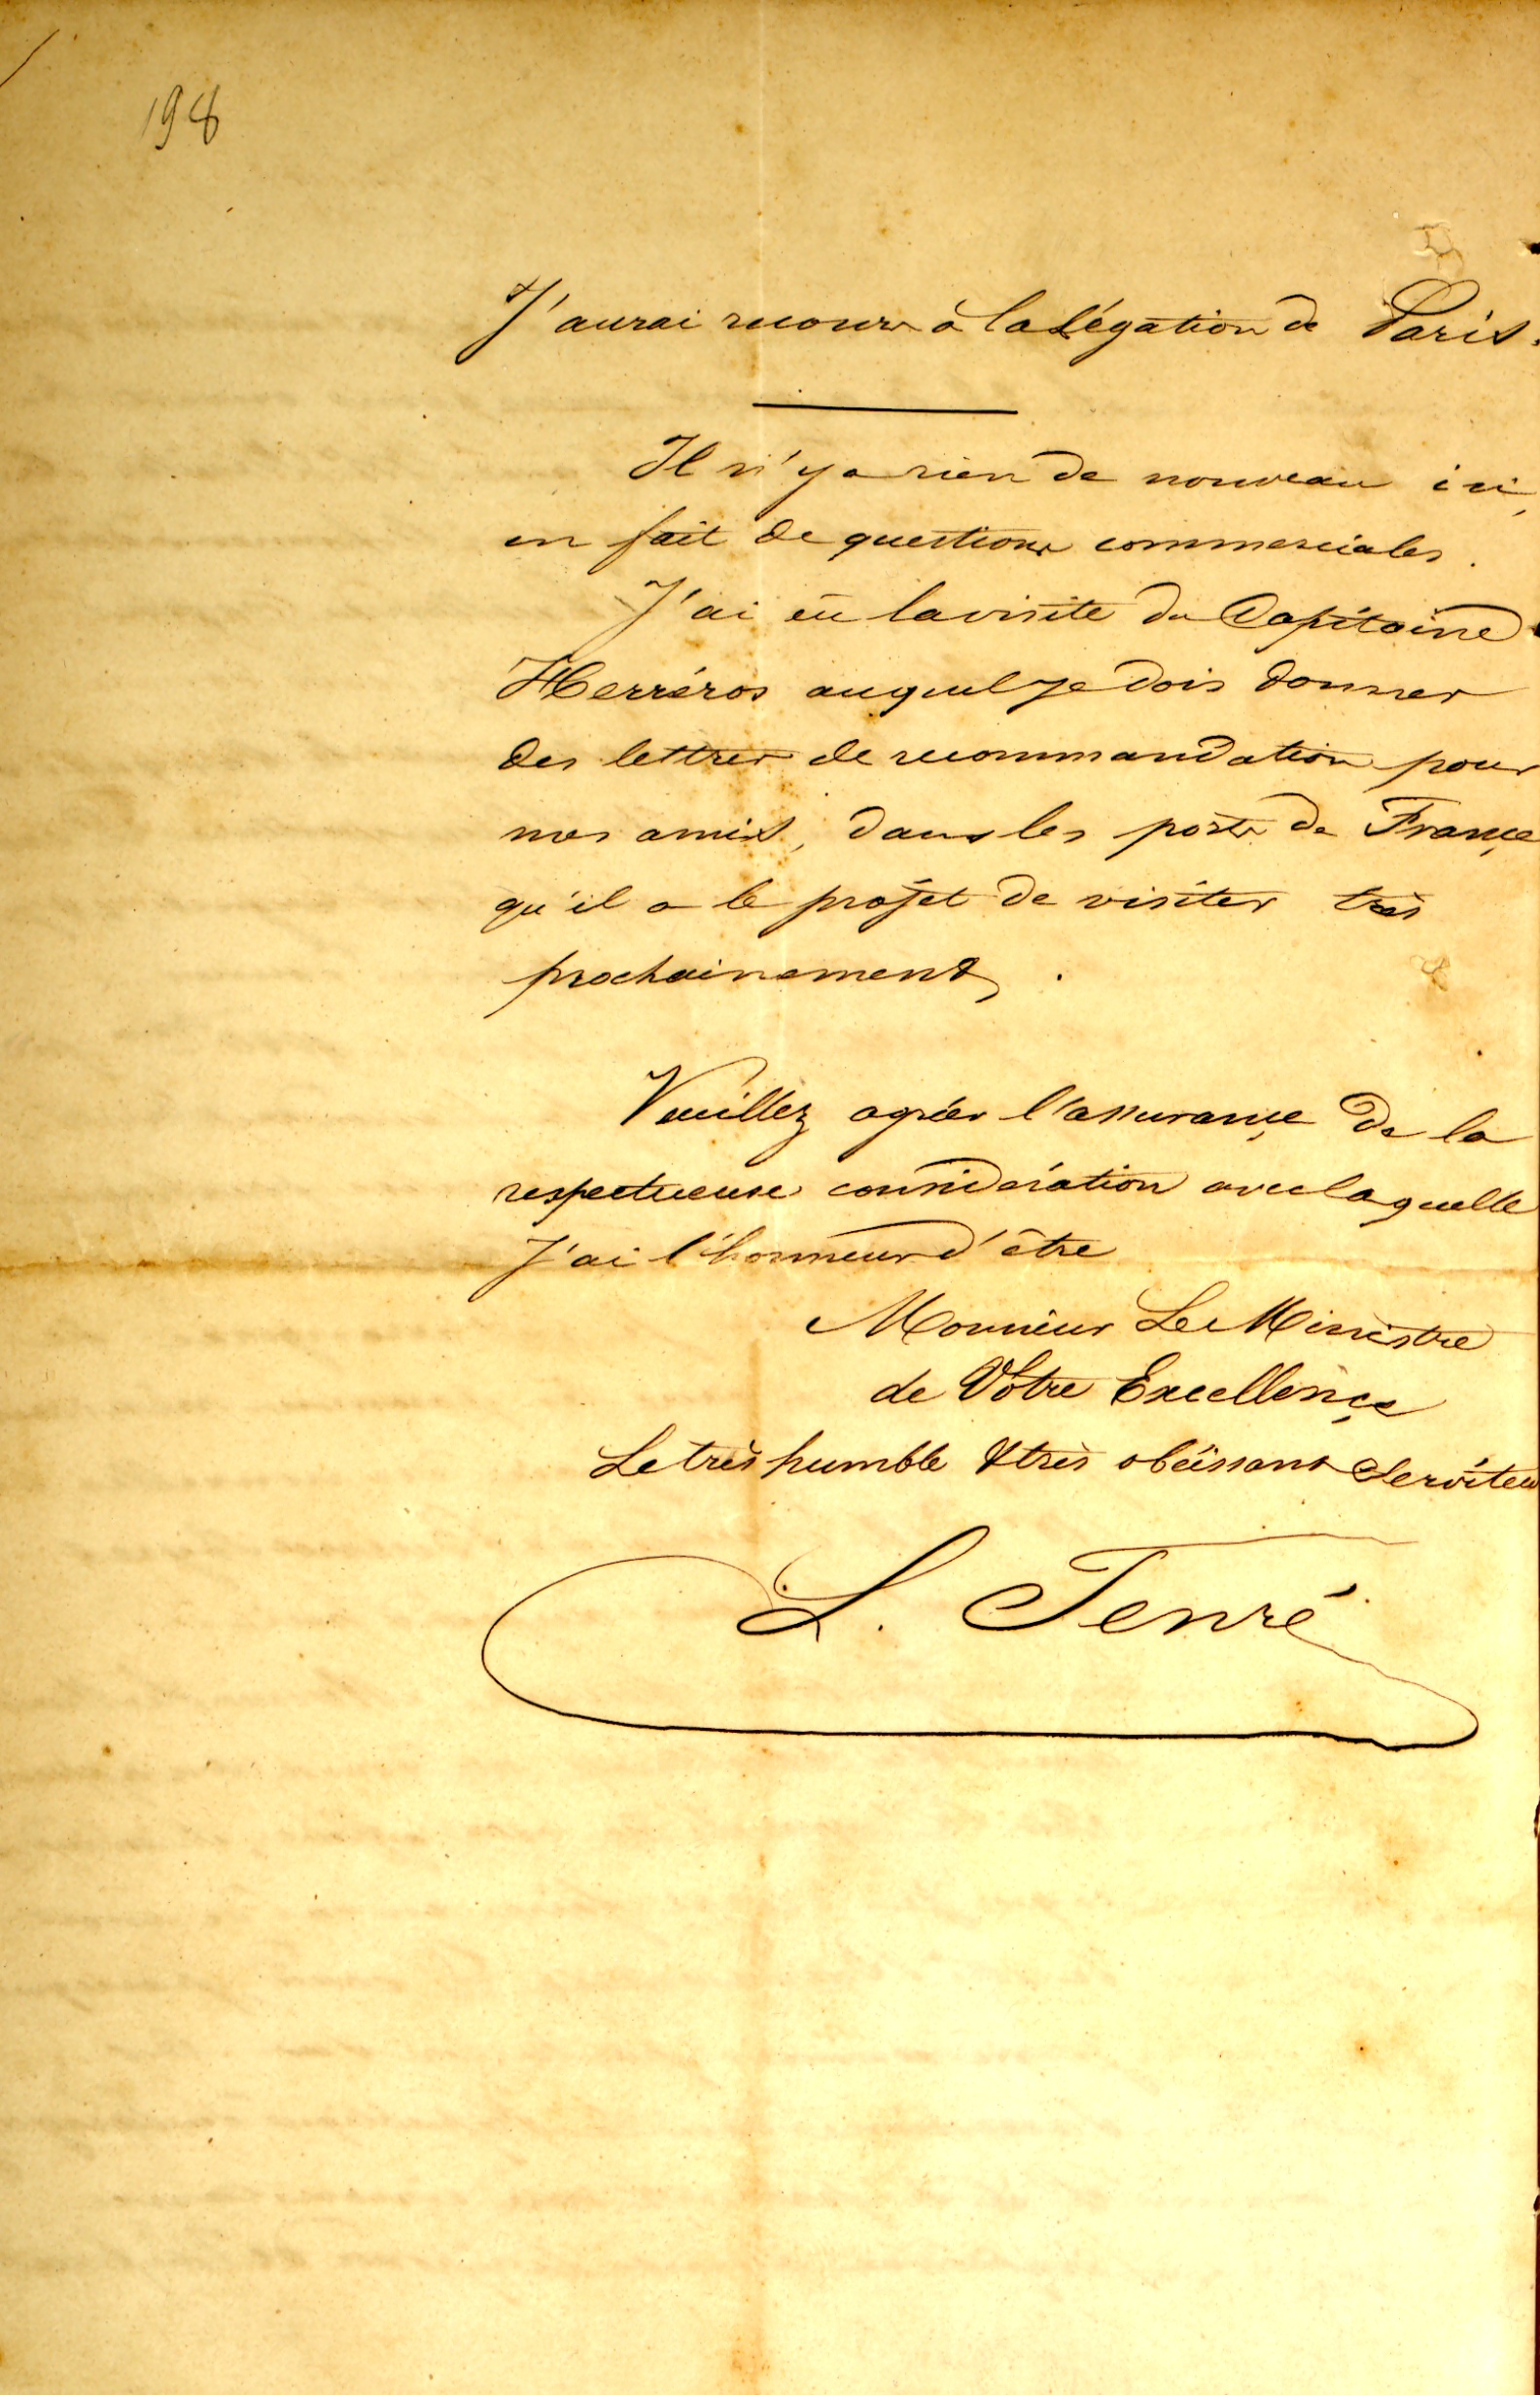 198
J'aurai recours à la Légation de Paris.
Il n'y a rien de nouveau ici,
en fait de questions commerciales.
J'ai eu la visite du Capitaine
Herréros auquel je dois donner
des lettres de recommandation pour
mes amis, dans les ports de France
qu'il a le projet de visiter très
prochainement.
Veuillez agréer l'assurance de la
respectueuse considération avec laquelle
J'ai l'honneur d'être
Monsieur Le Ministre
de Votre Excellence
Le très humble & très obéissant Serviteu
L. Tenré